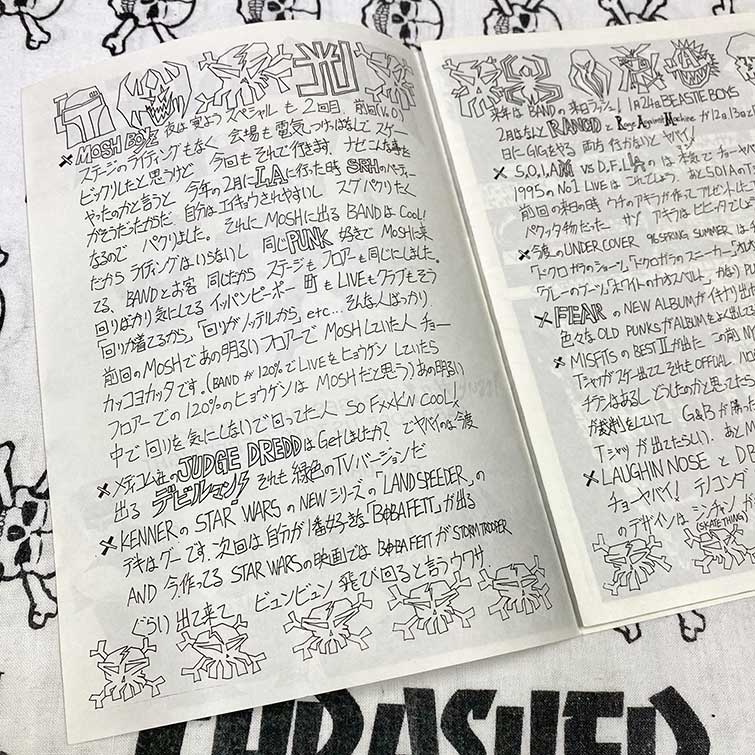 × MOSH BOYZ 夜は宴よう スペシャル も 2回目 前回(Vo.0)
ステージのライティングもなく 会場も電気つけっぱなしで スケー
ビックリしたと思うけど 今回もそれで行きます ナゼこんな事を
やったのかと言うと 今年の2月にLAに行った時 SRHのパーティー
がそうだったからだ 自分は エイキョウされやすいし スグパクリたく
なるので パクりました。 それに MOSHに出る BANDは COOL!
だから ライティングはいらないし 同じPUNK 好きで MOSHに来
てる、BANDとお客 同じだから ステージも フロアーも同じにしました。
回りばかり気にしてる イッパンピーポー 町も LIVEもクラブもそう
「回りが着てるから」「回りがノッテルから」etc... そんな人ばっかり
前回のMOSHで あの明るい フロアーで MOSHしていた人 チョー
カッコヨカッタです。(BANDが120%でLIVEをヒョウゲンしていたら
フロアーでの120%のヒョウゲンは MOSHだと思う) あの明るい
中で 回りを気にしないで回ってた人 SO FxxK'N COOL!
× メディコム社の JUDGE DREDDはGetしましたか? でヤバイのは今度
出る デビルマン! それも緑色のTVバージョンだ
× KENNERの STAR WARSの NEWシリーズの「LANDSPEEDER」の
デキはグーです、次回は自分が1番好きな「BOBAFETT」が出る
AND 今、作ってる STAR WARSの映画では BOBAFETTが STORM TROOPER
ぐらい 出て来て ビュンビュン 飛び回ると言うウワサ
来年は BANDの来日ラッシュ! 1月24日BEASTIE BOYS
2月はなんと RANCIDと Rage Against Machineが12日,13日
日にGIGをやる 両方 行かないと ヤバイ!
× S.O.I.A VS D.F.L.の は 本気で チョーヤ
1995のNo1 LIVEは これでしょう。 あとSOIAのTS
前回の来日の時 ウチのアキラが作って プレゼントした
パクッタ物だった
× 今度のUNDER COVER 96SPRING SUMMERは
「ドクロガラのショーツ」「ドクロガラのスニーカー」
「グレーのブーツ」「ホワイトの
× FEARのNEW ALBUMが イキナリ出た
色々なOLD PUNKSがALBUMをよく出して
× MISFITSのBESTⅡが出た この前
Tシャツが スゲー出てて それもOFFICIAL
チラシはあるし どうしたのかと思ってたら
が裁判をしていて G&Bが勝った
Tシャツが出てたらしい。 あと
× LAUGHIN NOSEと DB
チョーヤバイ!
のデザインは シンチャン!
(SKATETHING)
THRASHER